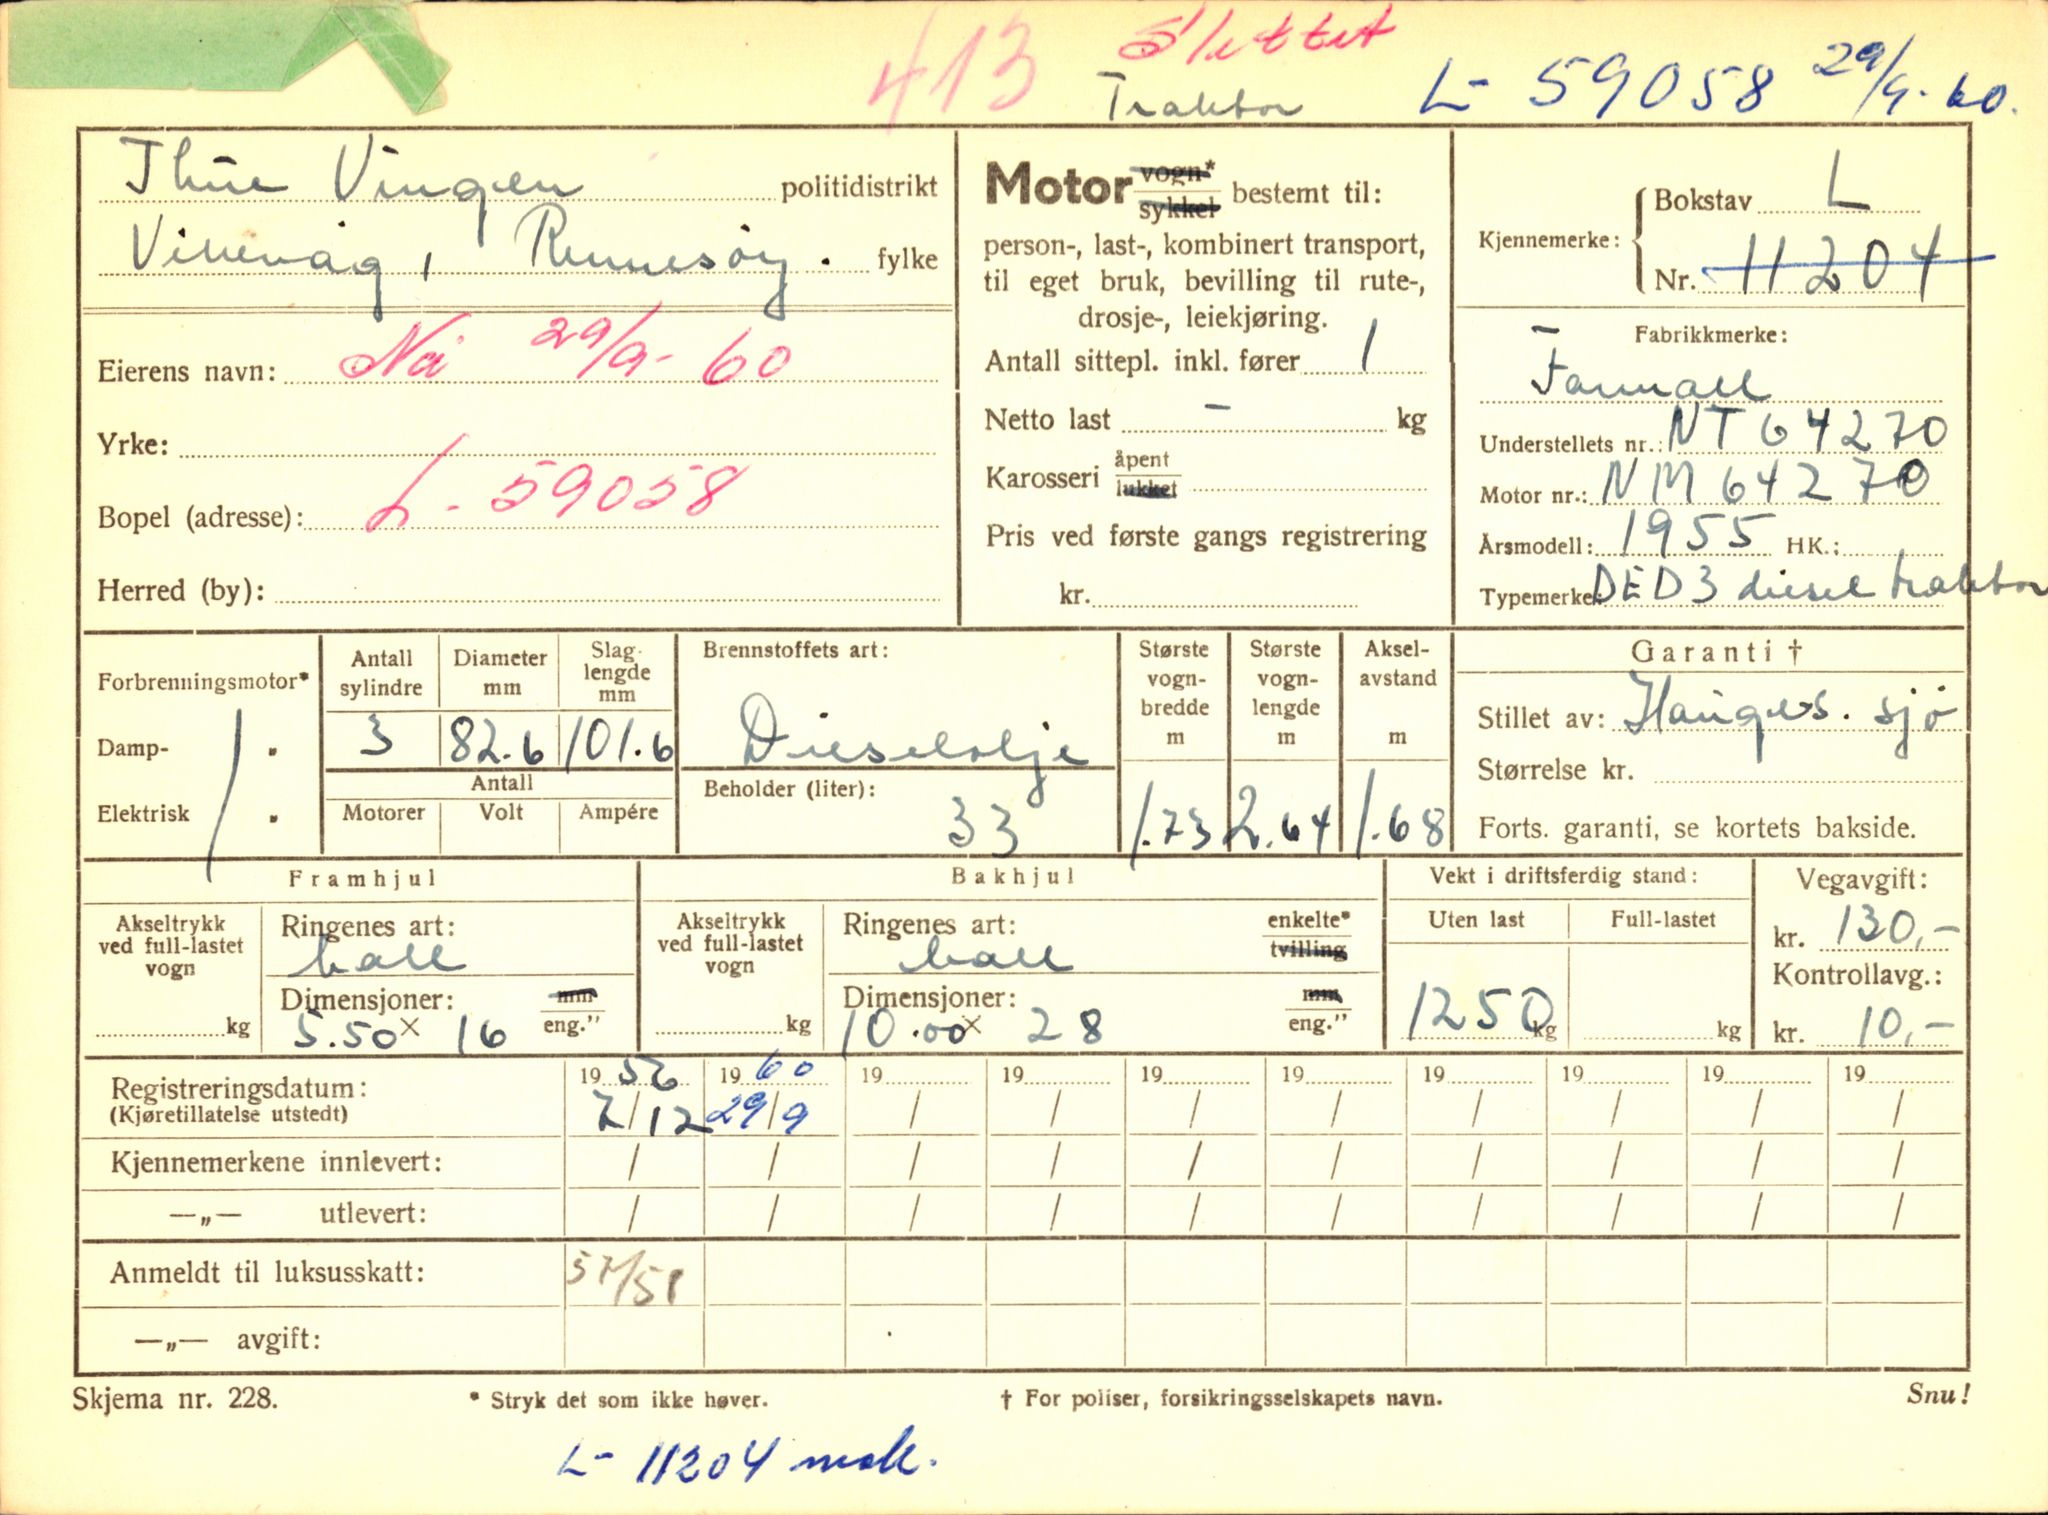 413 Slettet
Traktor L- 59058 29/9-60.
Thue Vingen politidistrikt
Vikevåg, Rennesøy. fylke
Eierens navn: Nå 29/9-60
Yrke:
Bopel (adresse): L-59058
Herred (by):
Motor vogn* sykkel bestemt til:
person-, last-, kombinert transport,
til eget bruk, bevilling til rute-,
drosje-, leiekjøring.
Antall sittepl. inkl. fører 1
Netto last - kg
Karosseri åpent lukket
Pris ved første gangs registrering
kr.
Kjennemerke: Bokstav L
Nr. 11204
Fabrikkmerke:
Farmall
Understellets nr.: NT 64270
Motor nr.: NM 64270
Årsmodell: 1955 HK.:
Typemerke: DED3 diesel traktor
Forbrenningsmotor*
Damp- "
Elektrisk "
Antall sylindre
3
Diameter mm
82.6
Slaglengde mm
101.6
Antall
Motorer Volt Ampére
Brennstoffets art:
Dieselolje
Beholder (liter):
33
Største vogn-bredde m
1.73
Største vogn-lengde m
2.64
Aksel-avstand m
1.68
Garanti †
Stillet av: Hauges. sjø
Størrelse kr.
Forts. garanti, se kortets bakside.
Framhjul
Akseltrykk ved full-lastet vogn
kg
Ringenes art:
ball
Dimensjoner: mm eng."
5.50 x 16
Bakhjul
Akseltrykk ved full-lastet vogn
kg
Ringenes art: enkelte* tvilling
ball
Dimensjoner: mm eng."
10.00 x 28
Vekt i driftsferdig stand:
Uten last Full-lastet
1250 kg kg
Vegavgift:
kr. 130,-
Kontrollavg.:
kr. 10,-
Registreringsdatum: 1956 1960 19 19 19 19 19 19 19 19
(Kjøretillatelse utstedt) 7/12 29/9 / / / / / / / /
Kjennemerkene innlevert: / / / / / / / / / /
—„— utlevert: / / / / / / / / / /
Anmeldt til luksusskatt: 57/58
—„— avgift:
Skjema nr. 228. * Stryk det som ikke høver. † For poliser, forsikringsselskapets navn. Snu!
L- 11204 mak.